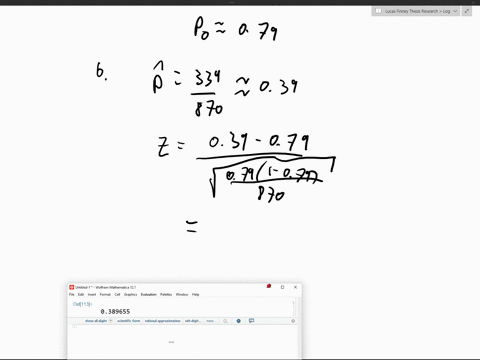 Lucas Finney Thesis Research > Log
P₀ ≈ 0.79
6. p̂ = 339/870 ≈ 0.39
z = (0.39 - 0.79) / √(0.79(1-0.79)/870)
=
Untitled-1 * - Wolfram Mathematica 12.1
File Edit Insert Format Cell Graphics Evaluation Palettes Window Help
Out[113]=
0.389655
show all digits scientific form rational approximation more...